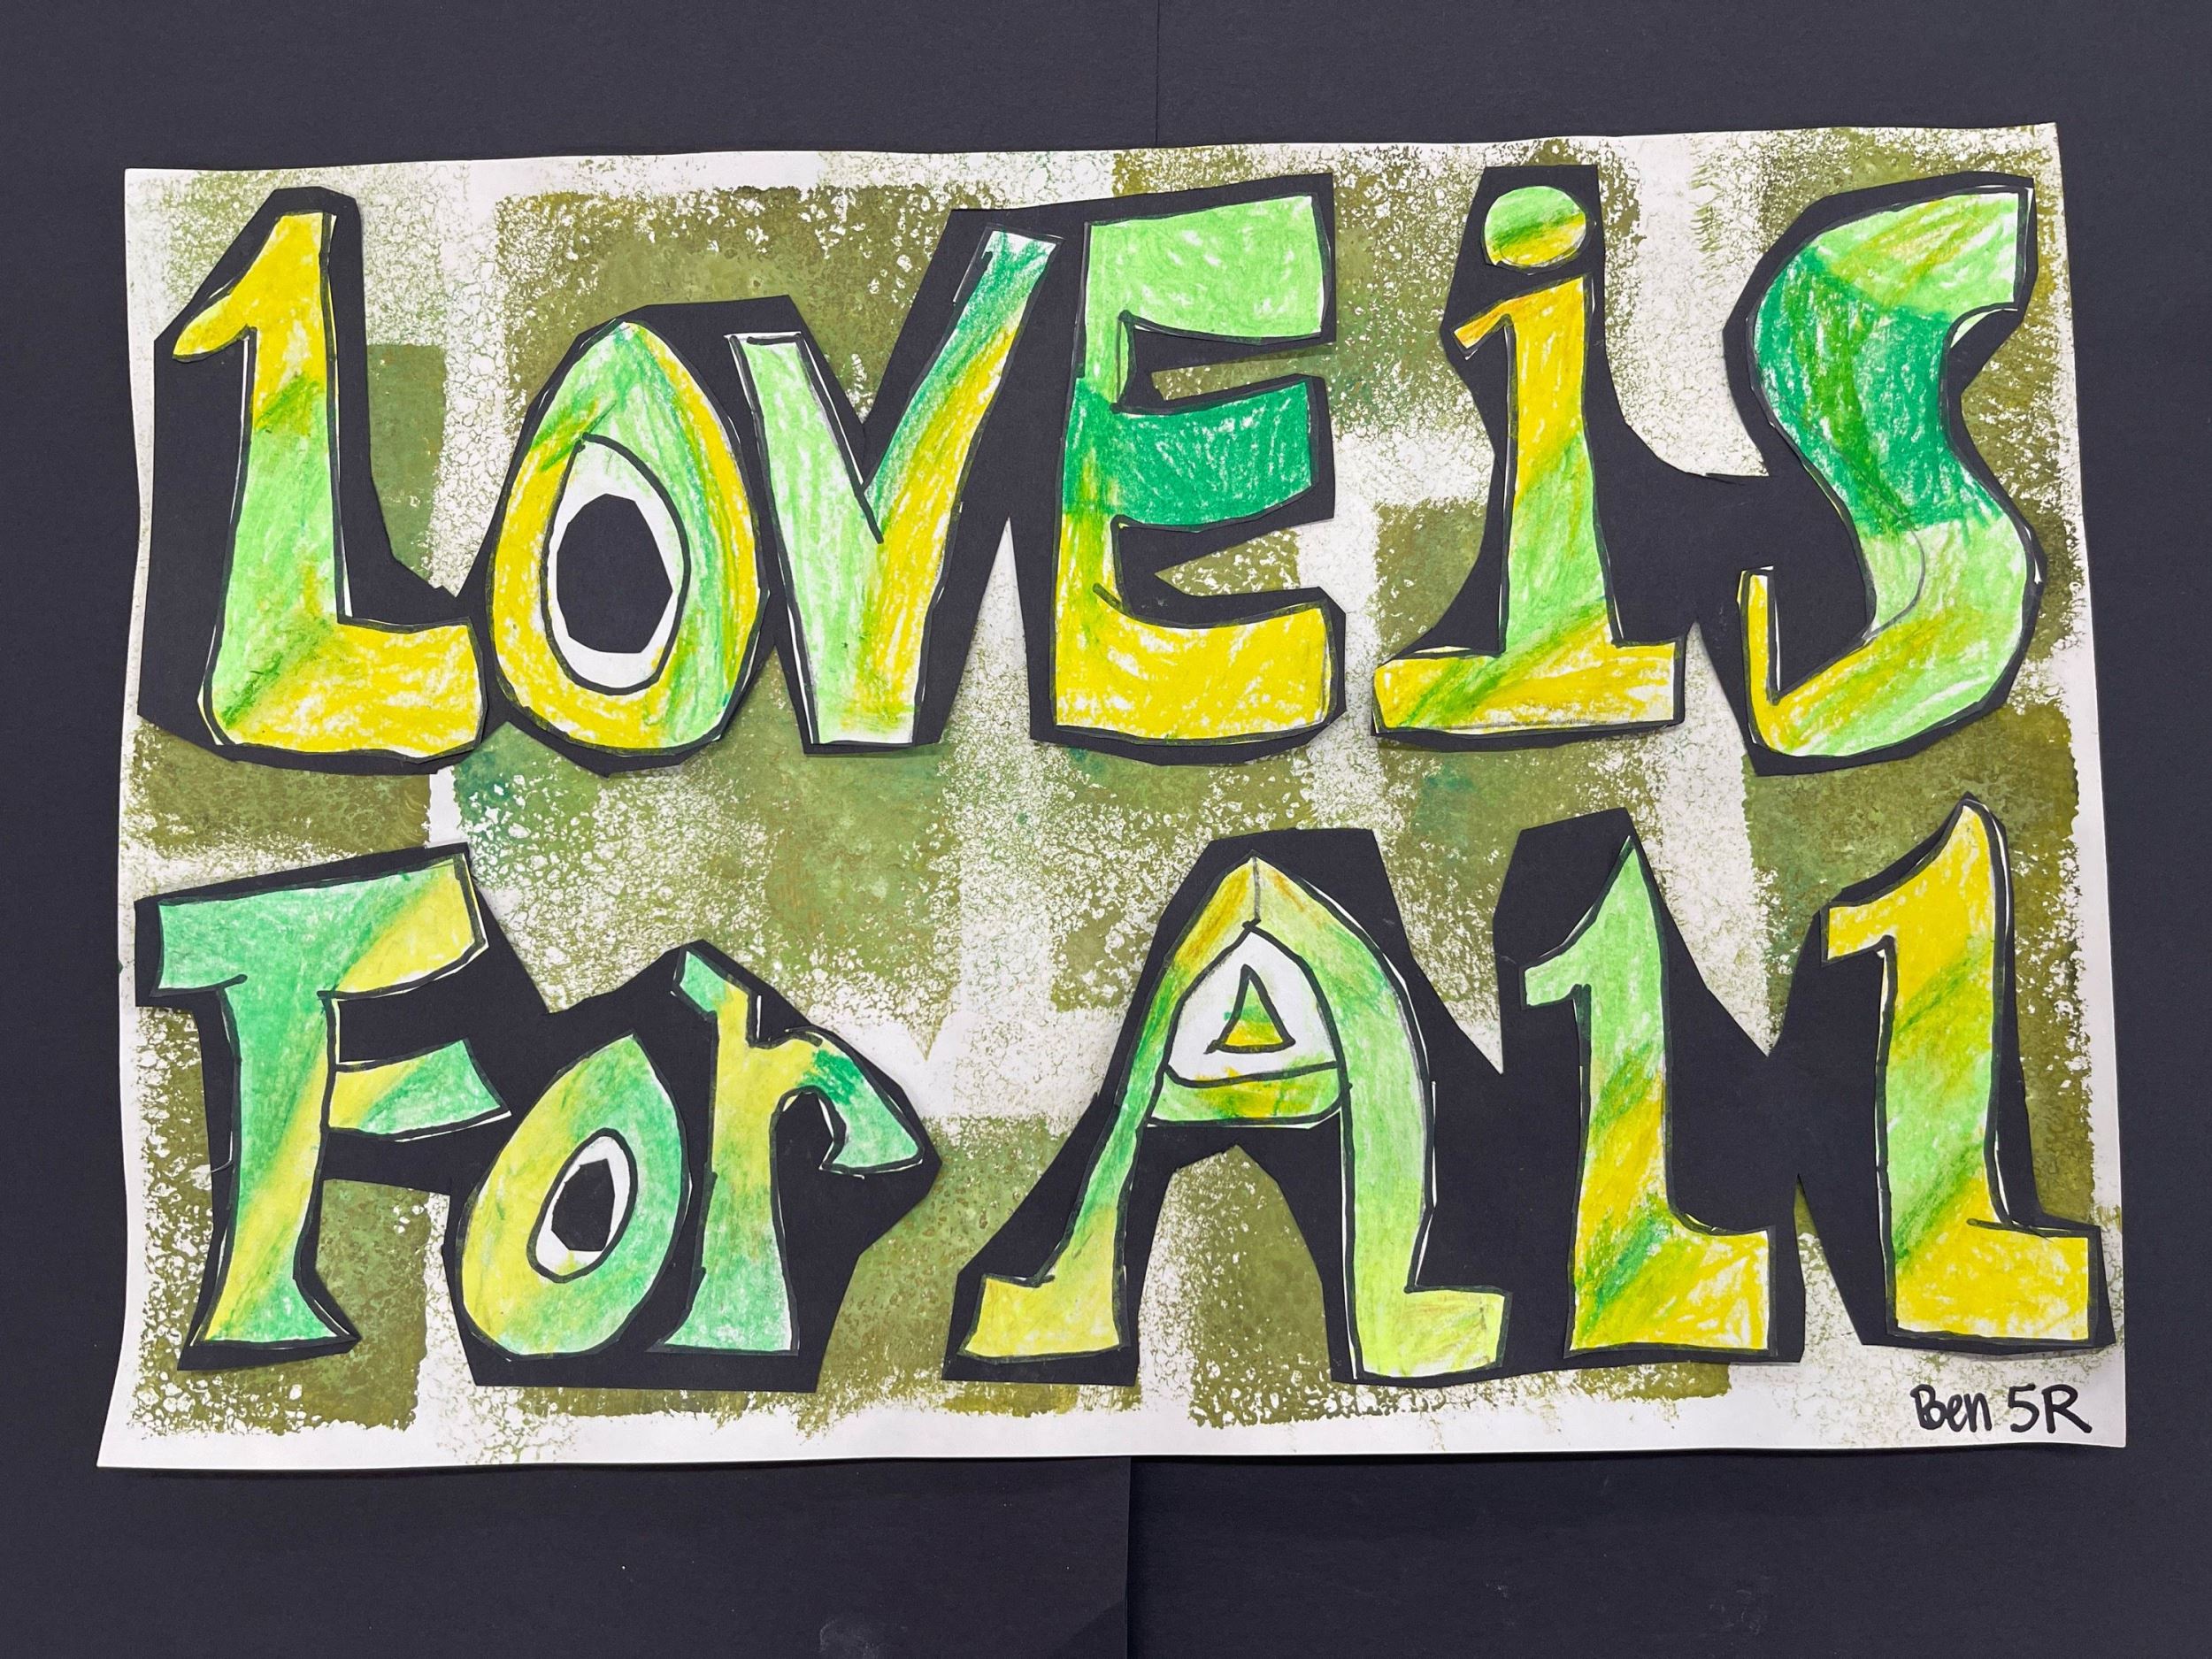 LOVE iS
For All
Ben 5R